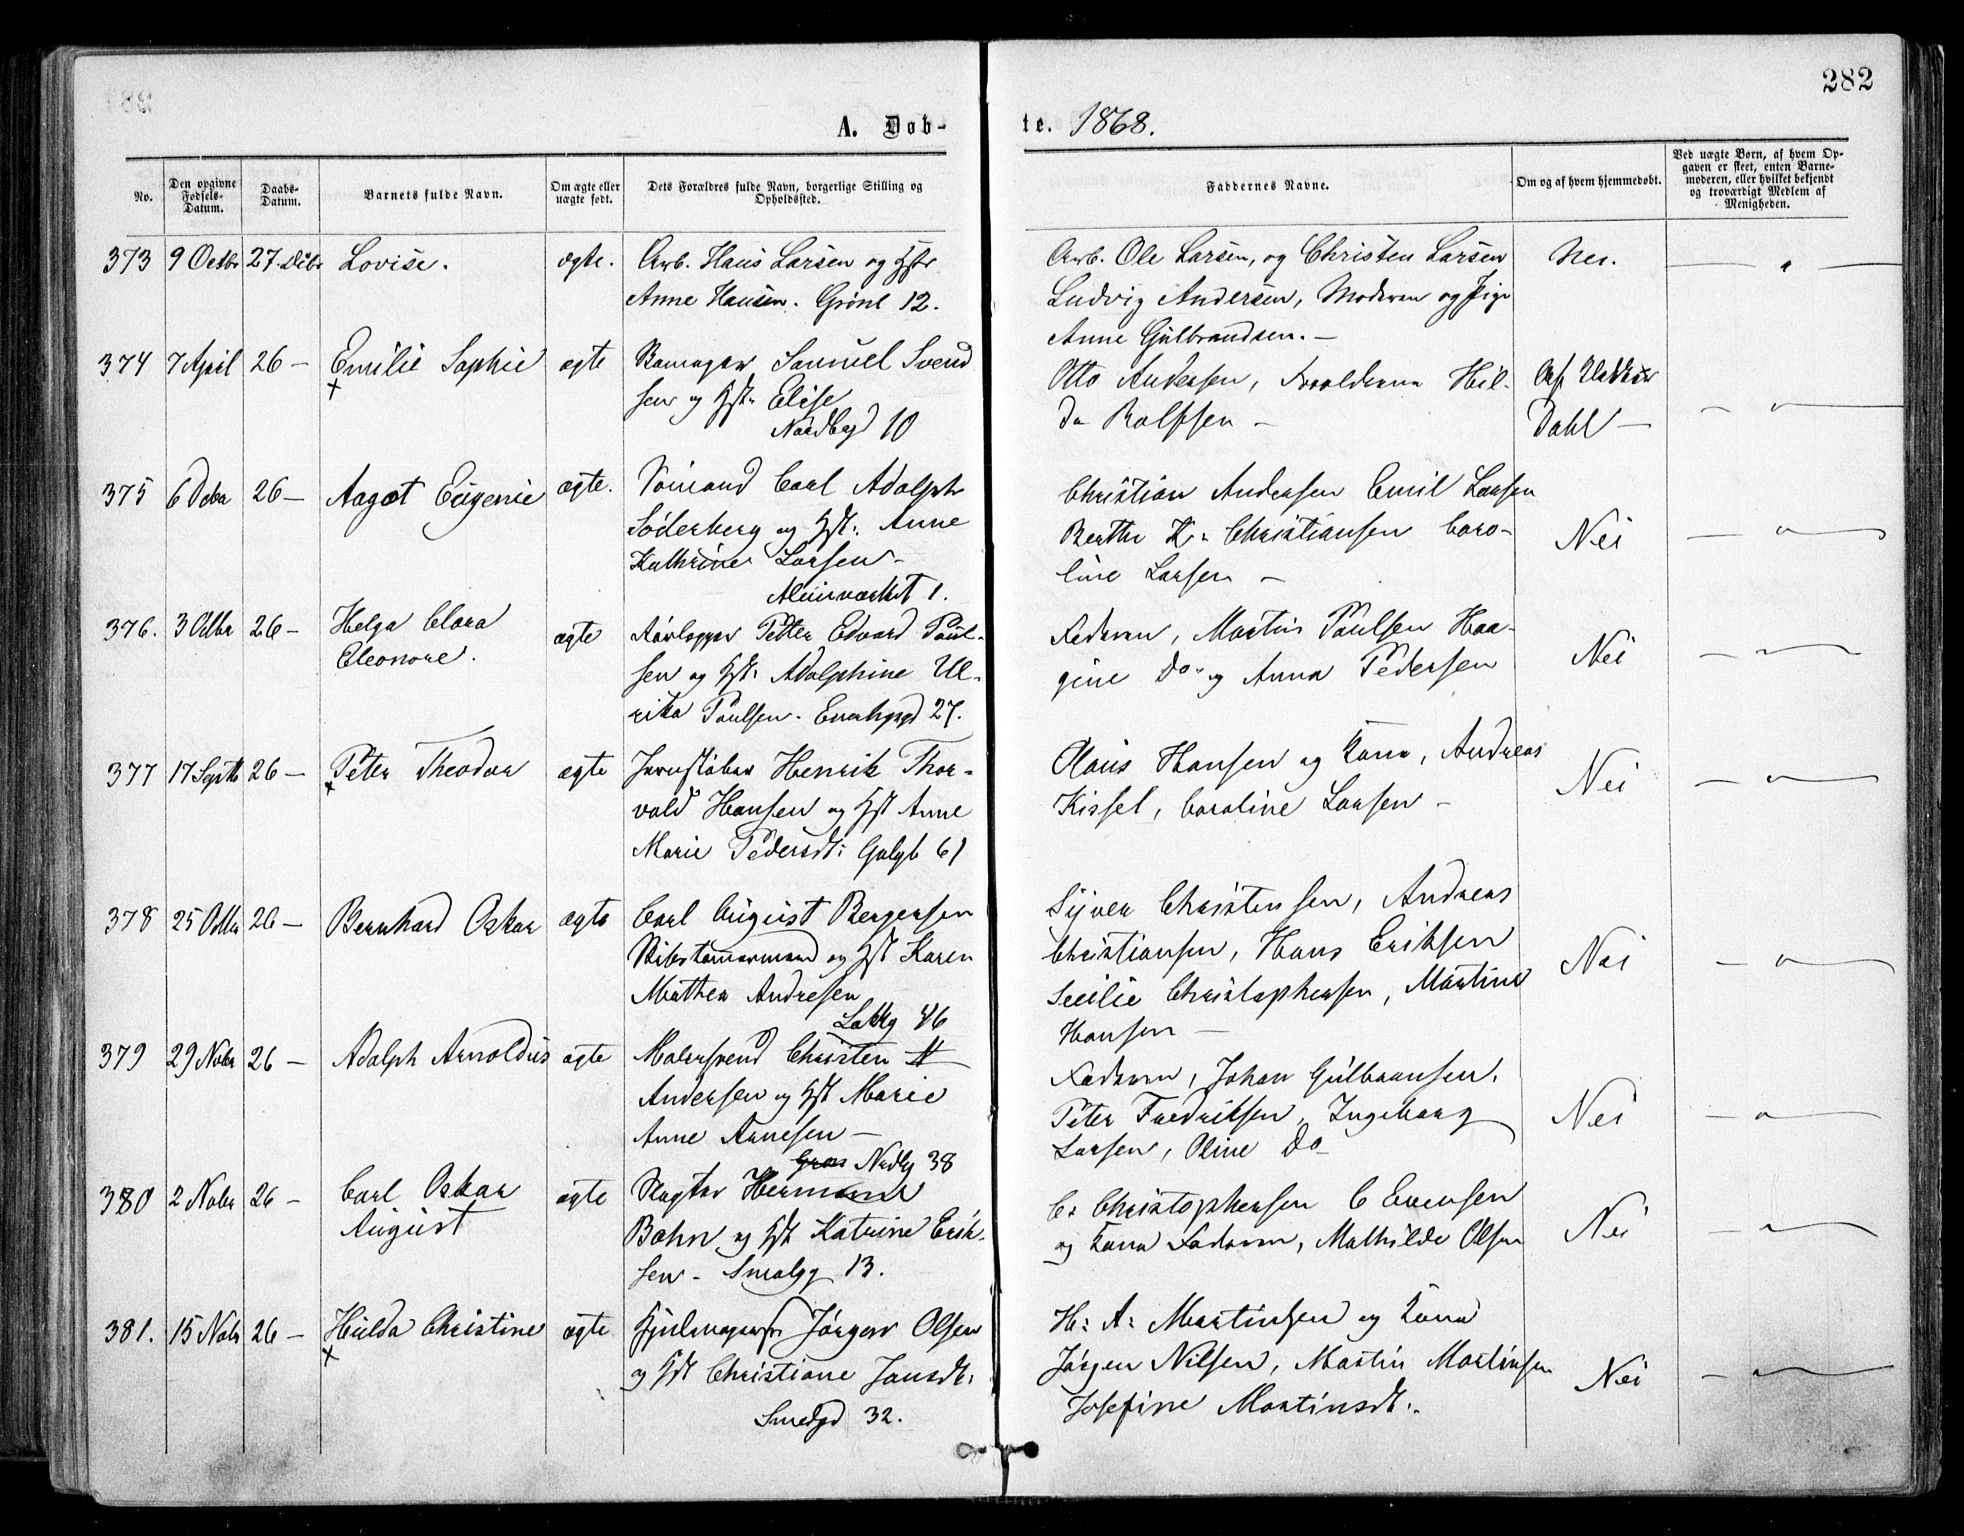 282
A. Døb-
te. 1868.
No.
Den opgivne Fødsels-Datum.
Daabs-Datum.
Barnets fulde Navn.
Om ægte eller uægte født.
Dets Forældres fulde Navn, borgerlige Stilling og Opholdssted.
Faddernes Navne.
Om og af hvem hjemmedøbt.
Ved uægte Børn, af hvem Opgaven er skeet, enten Barnemoderen, eller hvilket bekjendt og troværdigt Medlem af Menigheden.
373 9 Octbr 27 Debr Lovise. ægte. Arb. Hans Larsen og Hstr
Anne Hansen. Grønl 12.
Arb. Ole Larsen, og Christen Larsen Nei.
Ludvig Andersen, Moderen og Pige
Anne Gulbrandsen. —
374 7 April 26 — Emilie Sophie ægte Samuel Svend
sen og Hstr Elise
Nordbyd 10
Otto Andersen, Forældrene Hil-
da Rolfsen —
Dahl —
375 6 Octbr 26 — Aagot Eugenie ægte. Sømand Carl Adolph
Söderberg og Hst: Anne
Kathrine Larsen —
Alunværket 1.
Christian Andersen Emil Larsen
Berthe K: Christiansen Caro-
line Larsen —
Nei
376. 3 Octbr 26 — Helga Clara
Eleonore.
ægte Petter Edvard Paul-
sen og Hst: Adolphine Ul-
rika Paulsen. Enerhgd 27.
Faderen, Martin Paulsen Haa-
gine Do og Anna Pedersen
Nei
377 17 Septb 26 — Peter Theodor ægte Jernstøber Henrik Thor-
vald Hansen og Hst Anne
Marie Pedersdt: Galgb 61
Olaus Hansen og Kone, Andreas
Kissel, Caroline Larsen —
Nei
378 25 Octbr 26 — Bernhard Oskar ægte Carl August Bergersen
Skibstømmermand og Hst Karen
Mathea Andresen
Lakkg 46
Syver Christensen, Andreas
Christiansen, Hans Eriksen
Secilie Christophersen, Martine
Hansen —
Nei
379 29 Nobr 26 — Adolph Arnoldus ægte Malersvend Christen
Andersen og Hst Marie
Anne Arnesen —
Nrdby 38
Faderen, Johan Gulbransen.
Peter Fredriksen, Ingeborg
Larsen, Oline Do
Nei
380 2 Nobr 26 — Carl Oskar
August
ægte Slagter Hermann
Bohn og Hst Katrine Erik-
sen — Smalgg 13.
C: Christophersen C Evensen
og Kone Faderen, Mathilde Olsen
Nei
381. 15 Nobr 26 — Hulda Christine ægte Hjulmagersv Jørgen Olsen
og Hst Christiane Jansdt:
Smedgd 32.
H: A: Martinsen og Kone
Jørgen Nilsen, Martin Martinsen
Josefine Martinsdt:
Nei